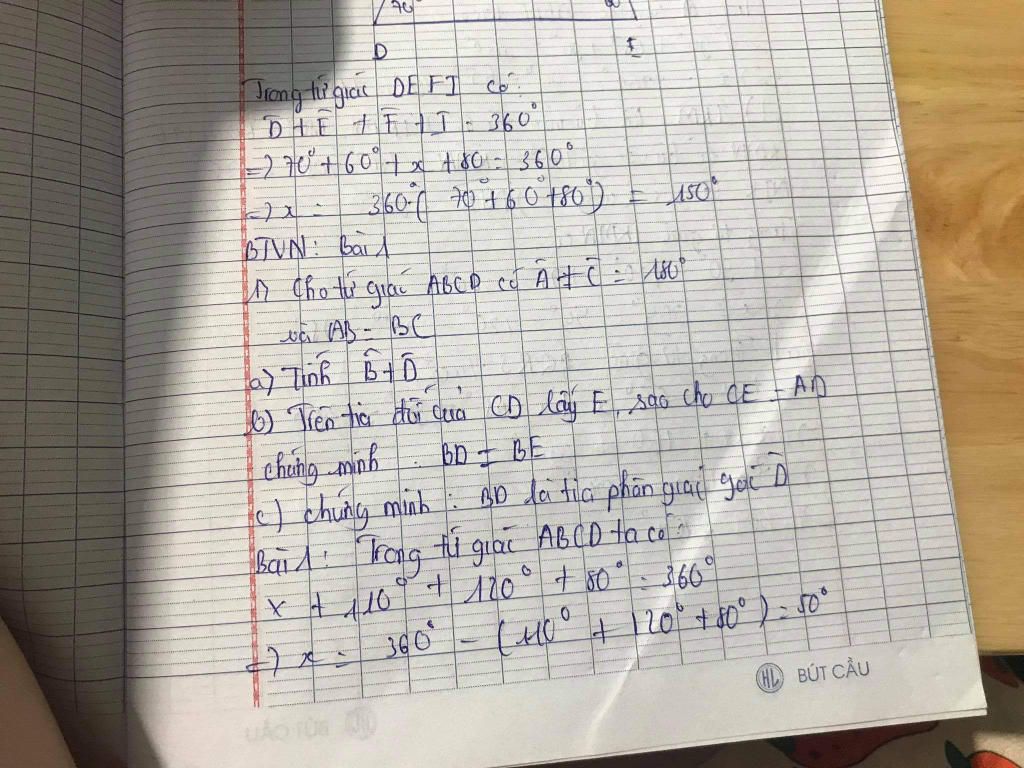 70°
D E
Trong tứ giác DEFI có:
D̂ + Ê + F̂ + Î = 360°
=> 70° + 60° + x + 80 = 360°
=> x = 360° - ( 70° + 60° + 80° ) = 150°
BTVN: Bài 1
1) Cho tứ giác ABCD có Â + Ĉ = 180°
và AB = BC
a) Tính B̂ + D̂
b) Trên tia đối của CD lấy E, sao cho CE = AD
chứng minh : BD = BE
c) chứng minh : BD là tia phân giác góc D̂
Bài 1: Trong tứ giác ABCD ta có:
x + 110° + 120° + 80° = 360°
=> x = 360° - (110° + 120° + 80°) = 50°
HL BÚT CẦU